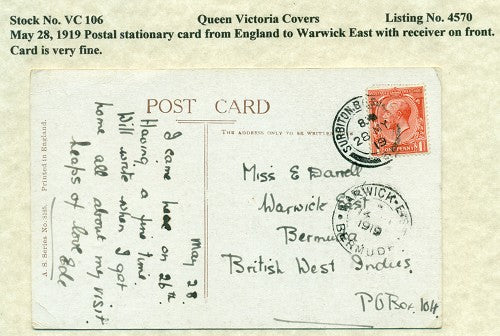 Stock No. VC 106 Queen Victoria Covers Listing No. 4570
May 28, 1919 Postal stationary card from England to Warwick East with receiver on front.
Card is very fine.
POST CARD
THE ADDRESS ONLY TO BE WRITTEN
A. S. Series No. Printed in England.
May 28
I came here on 26th.
Having a fine time.
Will write when I get
home all about my visit
heaps of love Ede
SURBITON.B
28 MY
19
ONE PENNY
Miss E Darrell
Warwick East
Bermuda
British West Indies.
P O Box 104.
WARWICK-E
1919
BERMUDA